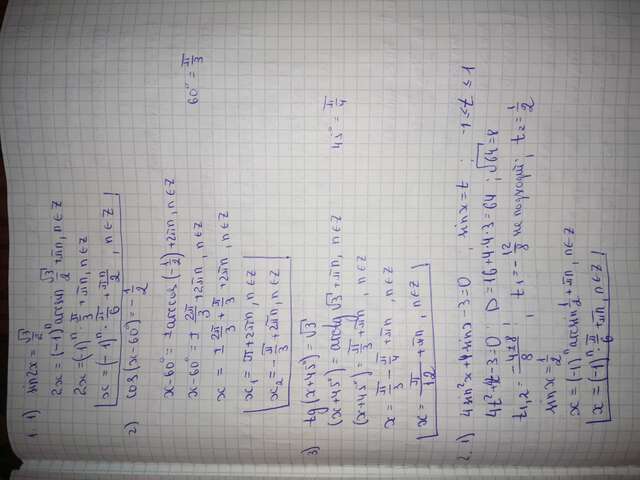 1. 1) sin2x = √3/2
2x = (-1)ⁿ arcsin √3/2 + πn, n ∈ Z
2x = (-1)ⁿ · π/3 + πn, n ∈ Z
x = (-1)ⁿ · π/6 + πn/2, n ∈ Z
2) cos(x-60°) = -1/2
x-60° = ±arccos(-1/2) + 2πn, n ∈ Z
x-60° = ± 2π/3 + 2πn, n ∈ Z 60° = π/3
x = ± 2π/3 + π/3 + 2πn, n ∈ Z
x₁ = π + 2πn, n ∈ Z
x₂ = -π/3 + 2πn, n ∈ Z
3) tg(x+45°) = √3
(x+45°) = arctg √3 + πn, n ∈ Z 45° = π/4
(x+45°) = π/3 + πn, n ∈ Z
x = π/3 - π/4 + πn, n ∈ Z
x = π/12 + πn, n ∈ Z
2. 1) 4sin²x + 4sinx - 3 = 0 ; sinx = t ; -1 ≤ t ≤ 1
4t² + 4t - 3 = 0 ; D = 16 + 4·4·3 = 64 ; √64 = 8
t₁,₂ = -4±8/8 ; t₁ = -12/8 не подходит; t₂ = 1/2
sinx = 1/2
x = (-1)ⁿ arcsin 1/2 + πn, n ∈ Z
x = (-1)ⁿ · π/6 + πn, n ∈ Z